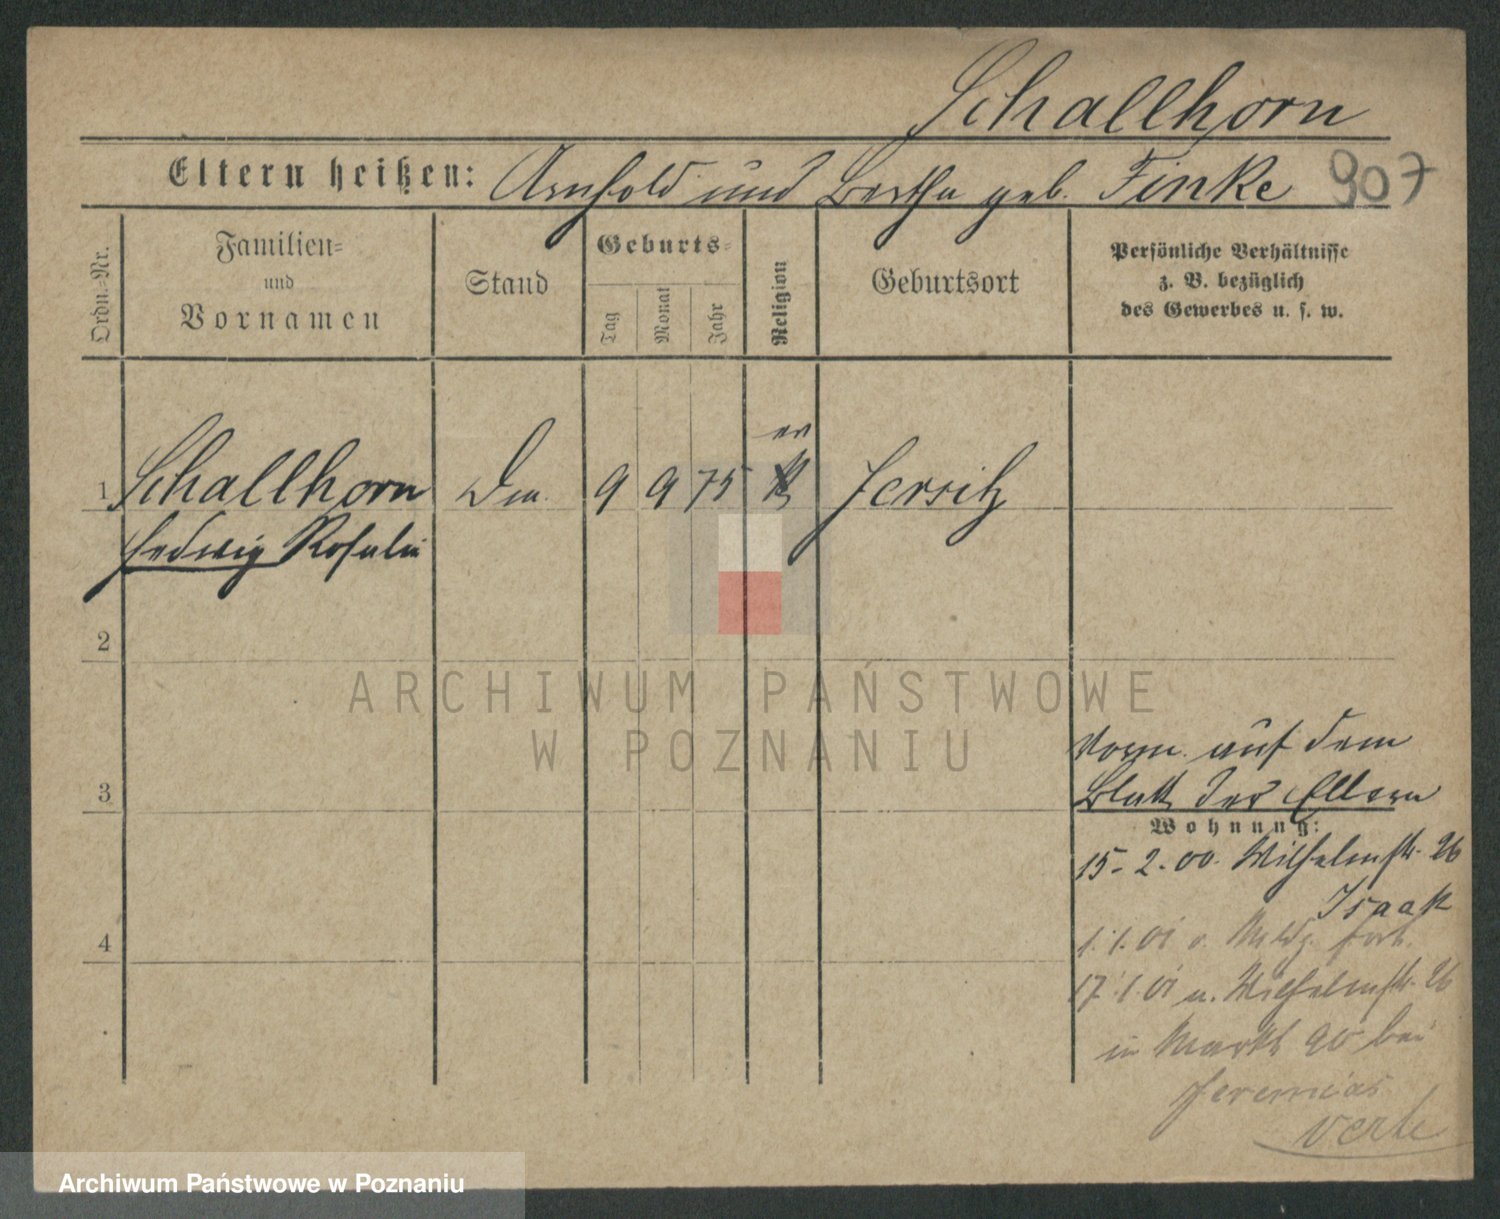 Schallhorn
Eltern heißen: Arnhold und Bertha geb. Finke 907
Ordn.-Nr.
Familien- und Vornamen
Stand
Geburts-
Tag
Monat
Jahr
Religion
Geburtsort
Persönliche Verhältnisse
z. B. bezüglich
des Gewerbes u. s. w.
ev
1 Schallhorn 9 9 75 Jersitz
Hedwig Rosalie
2
3
4
Vorm. auf dem
Blatt der Eltern
Wohnung:
15-2.00. Wilhelmstr. 26
Isaak
1.1.01 v. fort.
17.1.01 u. Wilhelmstr. 26
in Markt 90 bei
Jeremias
ARCHIWUM PAŃSTWOWE
W POZNANIU
Archiwum Państwowe w Poznaniu